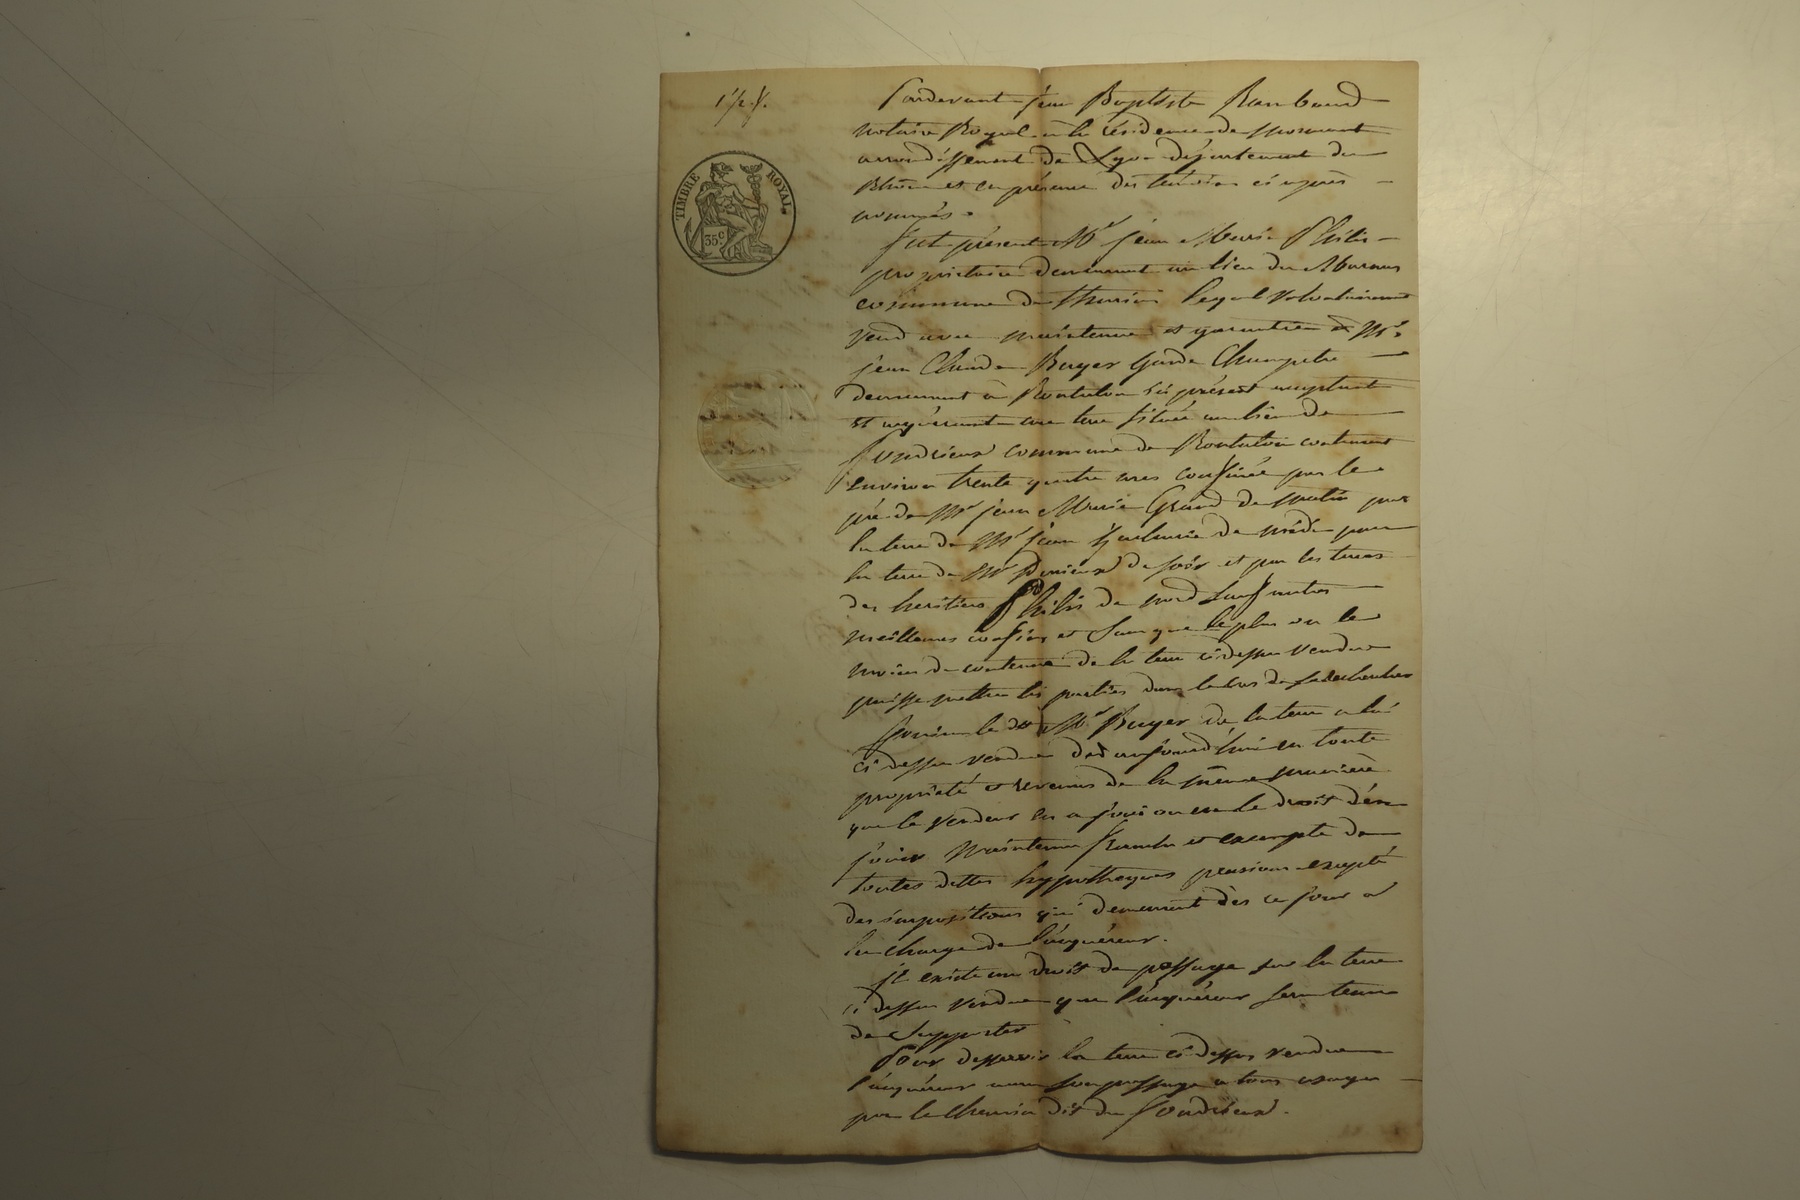 Pardevant Jean Baptiste Rambaud
notaire Royal à la résidence de mornant
arrondissement de Lyon département du
Rhône et en présence des témoins ci après
nommés.
fut présent Mr jean Marie Philis
propriétaire demeurant au lieu du
commune de thurins lequel volontairement
vend avec maintenue et garantie à Mr
jean Claude Buyer Garde Champetre
demeurant à Rontalon ici présent acceptant
et acquérant une terre située au lieu de
commune de Rontalon contenant
environ trente quatre ares confinée par le
pré de Mr jean Marie Grand de matin par
la terre de Mr jean de midi par
la terre de Mr de soir et par les terres
des heritiers Philis de nord sauf autres
meilleures confins et sans que le plus ou le
moins de contenue de la terre ci dessus vendue
puisse mettre les parties dans le cas de se rechercher
jouira le dit Mr Buyer de la terre a lui
ci dessus vendue des aujourd'hui en toute
propriété et revenus de la même manière
que le vendeur en a joui ou eu le droit d'en
jouir maintenue franche et exempte de
toutes dettes hypotheques pensions excepté
des impositions qui demeurent dès ce jour a
la charge de l'acquéreur.
il existe un droit de passage sur la terre
ci dessus vendue que l'acquéreur sera tenu
de supporter
Pour desservir la terre ci dessus vendue
l'acquéreur aura son passage a tous usages
par le chemin dit du
TIMBRE ROYAL
35c